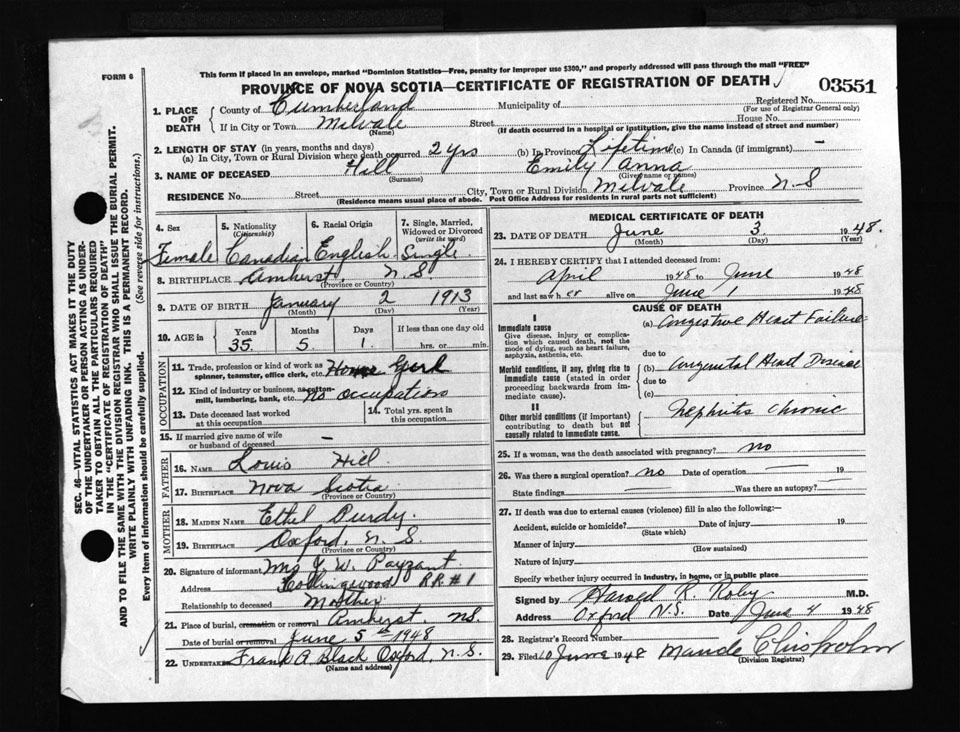 FORM 6
This form if placed in an envelope, marked "Dominion Statistics—Free, penalty for improper use $300," and properly addressed will pass through the mail "FREE"
PROVINCE OF NOVA SCOTIA—CERTIFICATE OF REGISTRATION OF DEATH
03551
SEC. 46—VITAL STATISTICS ACT MAKES IT THE DUTY
OF THE UNDERTAKER OR PERSON ACTING AS UNDER-
TAKER TO OBTAIN ALL THE PARTICULARS REQUIRED
IN THE "CERTIFICATE OF REGISTRATION OF DEATH"
AND TO FILE THE SAME WITH THE DIVISION REGISTRAR WHO SHALL ISSUE THE BURIAL PERMIT.
WRITE PLAINLY WITH UNFADING INK. THIS IS A PERMANENT RECORD.
Every item of information should be carefully supplied. (See reverse side for instructions.)
1. PLACE OF DEATH
County of Cumberland Municipality of Registered No.
(For use of Registrar General only)
If in City or Town Milvale Street House No.
(Name) (If death occurred in a hospital or institution, give the name instead of street and number)
2. LENGTH OF STAY (in years, months and days)
(a) In City, Town or Rural Division where death occurred 2 yrs (b) In Province Lifetime (c) In Canada (if immigrant) —
3. NAME OF DECEASED Hill Emily Anna
(Surname) (Given name or names)
RESIDENCE No. Street City, Town or Rural Division Milvale Province N.S
(Residence means usual place of abode. Post Office Address for residents in rural parts not sufficient)
4. Sex 5. Nationality (Citizenship) 6. Racial Origin 7. Single, Married, Widowed or Divorced (write the word)
Female Canadian English Single
8. BIRTHPLACE Amherst N.S
(Province or Country)
9. DATE OF BIRTH January 2 1913
(Month) (Day) (Year)
10. AGE in Years Months Days If less than one day old
35 5. 1. hrs. or min.
OCCUPATION
11. Trade, profession or kind of work as spinner, teamster, office clerk, etc. Home
12. Kind of industry or business, as cotton-mill, lumbering, bank, etc. no occupation
13. Date deceased last worked at this occupation
14. Total yrs. spent in this occupation
15. If married give name of wife or husband of deceased —
FATHER
16. NAME Louis Hill
17. BIRTHPLACE Nova Scotia
(Province or Country)
MOTHER
18. MAIDEN NAME Ethel Purdy.
19. BIRTHPLACE Oxford, N.S.
(Province or Country)
20. Signature of informant Mrs J. W. Payzant
Address Collingwood R.R. #1
Relationship to deceased Mother
21. Place of burial, cremation or removal Amherst, N.S.
Date of burial or removal June 5th 1948
22. UNDERTAKER Frank A Black Oxford, N.S.
(Name and address)
MEDICAL CERTIFICATE OF DEATH
23. DATE OF DEATH June 3. 1948.
(Month) (Day) (Year)
24. I HEREBY CERTIFY that I attended deceased from:
April 1948 to June 1948
and last saw her alive on June 1 1948
CAUSE OF DEATH
I
Immediate cause
Give disease, injury or complication which caused death, not the mode of dying, such as heart failure, asphyxia, asthenia, etc.
(a) Congestive Heart Failure
due to
Morbid conditions, if any, giving rise to immediate cause (stated in order proceeding backwards from immediate cause).
(b) Congenital Heart Disease
due to
(c)
II
Other morbid conditions (if important) contributing to death but not causally related to immediate cause.
Nephritis Chronic
25. If a woman, was the death associated with pregnancy? no
26. Was there a surgical operation? no Date of operation — 19
State findings — Was there an autopsy?
27. If death was due to external causes (violence) fill in also the following:—
Accident, suicide or homicide? Date of injury 19
(State which)
Manner of injury
(How sustained)
Nature of injury
Specify whether injury occurred in industry, in home, or in public place
Signed by Harold R. Roby M.D.
Address Oxford N.S. Date June 4 1948
28. Registrar's Record Number
29. Filed 10 June 1948 Maude Chisholm
(Division Registrar)